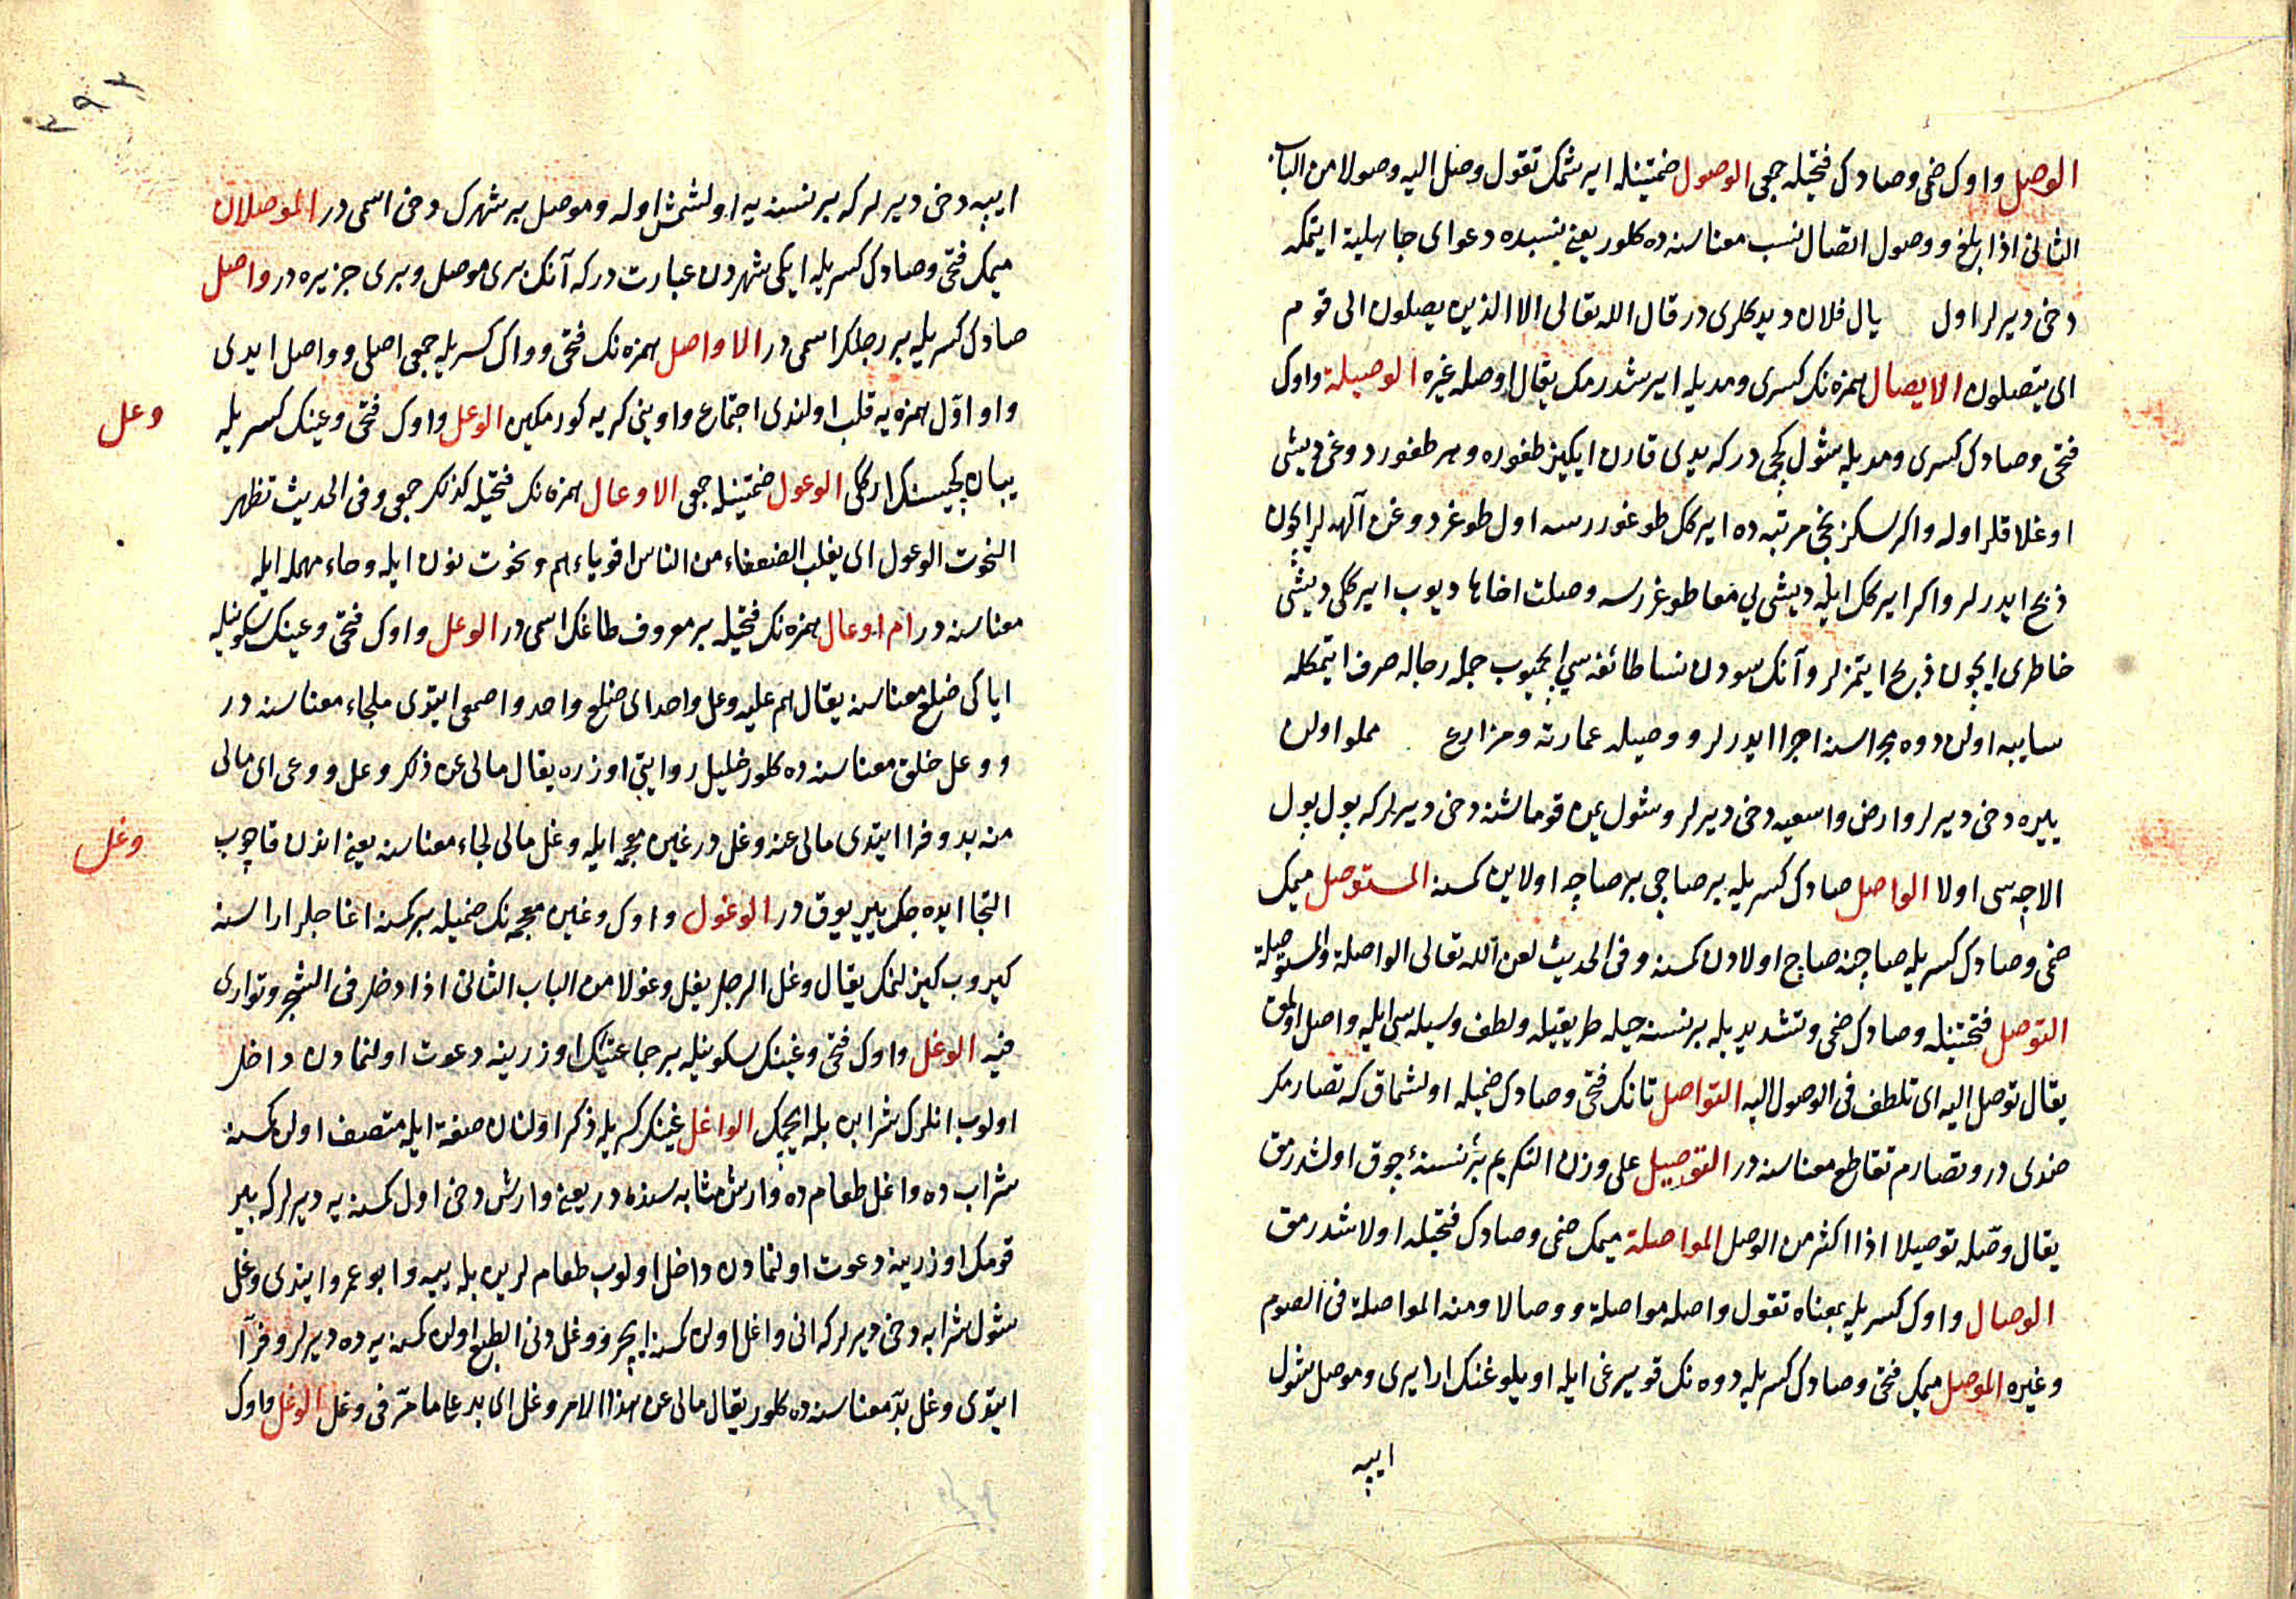 الوصل واوك ضمى وصادك فتحيله جمعى الوصول ضمتينله ايرشمك تقول وصل اليه وصولا من الباب
الثانى اذا بلغ ووصول اتصال نسب معناسنه ده كلور يعنى نسبده دعواى جاهلية ايتمكه
دخى ديرلر اول يال فلان ديدكلرى در قال الله تعالى الا الذين يصلون الى قوم
اى يتصلون الايصال همزه نك كسرى ومديله ايرشدرمك يقال اوصله غيره الوصيلة واوك
فتحى وصادك كسرى ومديله شول كچى در كه يدى قارن ايكيز طغوره وهر طغوردوغى ديشى
اوغلاقلر اوله واكر سكزنجى مرتبه ده ايركك طوغوررسه اول طوغردوغن آلهه لر ايچون
ذبح ايدرلر واكر ايركك ايله ديشى يى معا طوغررسه وصلت اخاها ديوب ايركى ديشى
خاطرى ايچون ذبح ايتمزلر وآنك سودن نسا طائفه سى ايچميوب جمله رجاله صرف ايتمكله
سايبه اولن دوه مجراسنه اجرا ايدرلر ووصيله عمارته ومزارع مملو اولن
ييره دخى ديرلر وارض واسعيه دخى ديرلر وشول يمن قوماشنه دخى ديرلر كه يول يول
الاجه سى اولا الواصل صادك كسريله بر صاچى بر صاچه اولاين كمسنه المستوصل ميمك
ضمى وصادك كسريله صاچنه صاچ اولادن كمسنه وفى الحديث لعن الله تعالى الواصلة والمستوصلة
التوصل فتحتينله وصادك ضمى وتشديديله بر نسنه حيله طريقيله ولطف وسيله سى ايله واصل اولمق
يقال توصل اليه اى تلطف فى الوصول اليه التواصل تانك فتحى وصادك ضميله اولشماق كه تصارمك
ضدى در وتصارم تقاطع معناسنه در التوصيل على وزن التكريم بر نسنۀ چوق اولشدرمق
يقال وصّله توصيلا اذا اكثر من الوصل المواصلة ميمك ضمى وصادك فتحيله اولاشدرمق
الوصال واوك كسريله بمعناه تقول واصله مواصلة ووصالا ومنه المواصلة فى الصوم
وغيره الموصل ميمك فتحى وصادك كسريله دوه نك قويرغى ايله اويلوغنك ارا يرى وموصل شول
ايپه
ايپه دخى ديرلر كه بر نسنه يه اولشمش اوله وموصل بر شهرك دخى اسمى در الموصلان
ميمك فتحى وصادك كسريله ايكى شهردن عبارت در كه آنك برى موصل وبرى جزيره در واصل
صادك كسريله بر رجلك اسمى در الاواصل همزه نك فتحى وواك كسريله جمعى اصلى وواصل ايدى
واو اوّل همزه يه قلب اولندى اجتماع واوينى كريه كورمكين الوعل واوك فتحى وعينك كسريله
وعل
يبان كچيسنك اركلى الوعول ضمتينله جمعى الاوعال همزه نك فتحيله كذلك جمعى وفى الحديث تظهر
النحوت الوعول اى يغلب الضعفاء من الناس اقوياءهم ونحوت نون ايله وحاء مهمله ايله
معناسنه در ام اوعال همزه نك فتحيله بر معروف طاغك اسمى در الوعل واوك فتحى وعينك سكونيله
اياكى ضلع معناسنه يقال هم عليه وعل واحد اى ضلع واحد واصمعى ايتدى ملجاء معناسنه در
ووعل خلق معناسنه ده كلور خليل روايتى اوزره يقال مالى عن ذلك وعل ووعى اى مالى
منه بد وفرا ايتدى مالى عنه وغل در غين معجمه ايله وغل مالى لجاء معناسنه يعنى اندن قاچوب
وغل
التجا ايده جك ير يوق در الوغول واوك وغين معجمه نك ضميله بر كمسنه اغاجلر اراسنه
كيروب كيزلنمك يقال وغل الرجل يغل وغولا من الباب الثانى اذا دخل فى الشجر وتوارى
فيه الوغل واوك فتحى وغينك سكونيله بر جماعتك اوزرينه دعوت اولنمادن داخل
اولوب انلرك شرابن بله ايچمك الواغل غينك كسريله ذكر اولنان صفة ايله متصف اولن كمسنه
شراب ده واغل طعام ده وارش مثابه سنده در يعنى وارش دخى اول كمسنه يه ديرلر كه بر
قومك اوزرينه دعوت اولنمادن داخل اولوب طعاملرين بله ييه وابو عمرو ايتدى وغل
شول شرابه دخى ديرلر كه انى واغل اولن كمسنه ايچر ووغل دنى الطبع اولن كمسنه يه ده ديرلر وفرآ
ايتدى وغل بدّ معناسنه ده كلور يقال مالى عن هذا الامر وغل اى بد على ما مرّ فى وعل الوغل واوك